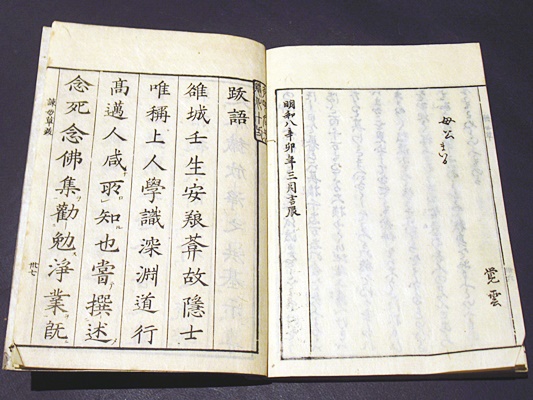 覺雲
母公
明和八辛卯年三月吉辰
跋語
雒城壬生安養葊故隱士
唯稱上人學識深淵道行
高邁人咸所知也嘗撰述
念死念佛集勸勉淨業既
卅七